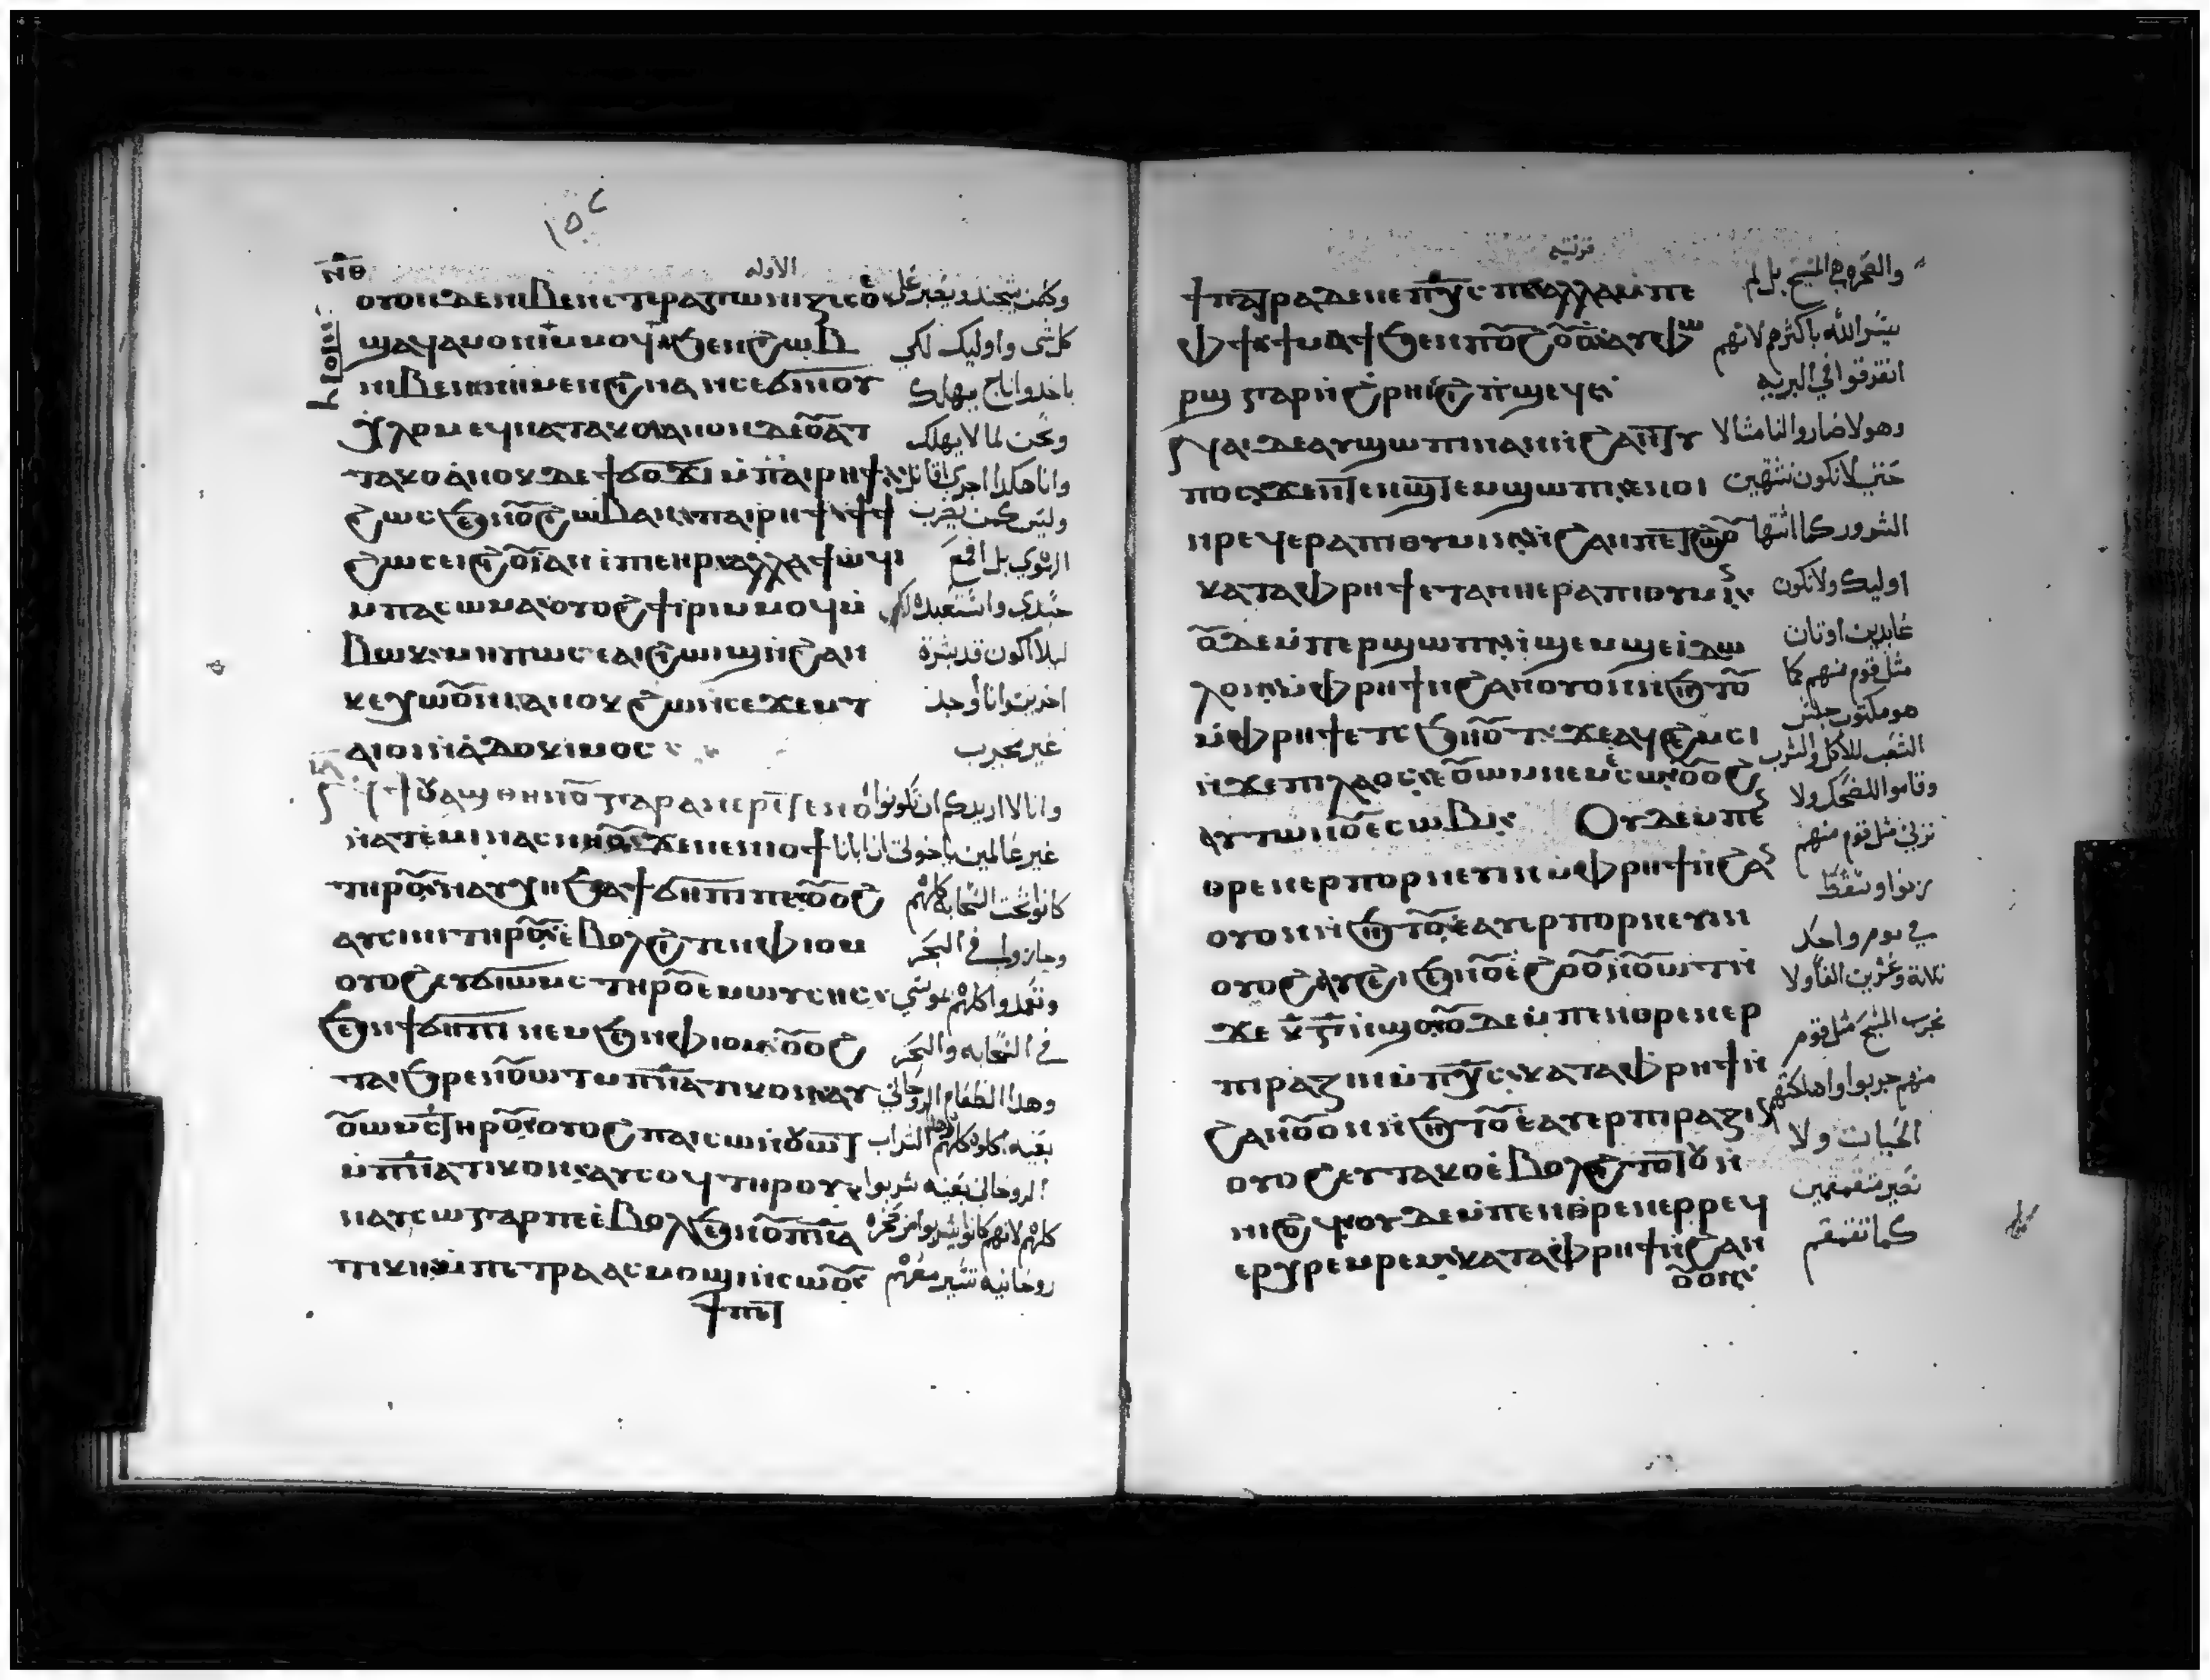 ١٥٢
ⲛ̅ⲑ̅ الاوله
ⲟⲩⲟⲛ ⲇⲉ ⲛⲓⲃⲉⲛ ⲉⲧⲉⲣⲁⲅⲱⲛⲓⲍⲉⲥⲑⲉ وكلمن يتجند ويصبر على
ϣⲁϥⲁⲙⲟⲛⲓ ⲙⲙⲟϥ ϧⲉⲛ ϩⲱⲃ كل شى واوليك لكي
ⲛⲓⲃⲉⲛ ⲛⲏ ⲙⲉⲛ ϩⲓⲛⲁ ⲛⲥⲉϭⲓ ⲛⲟⲩ ياخدوا تاج يهلك
ⲭⲗⲟⲙ ⲉϥⲛⲁⲧⲁⲕⲟ ⲁⲛⲟⲛ ⲇⲉ ⲟ̅ⲁⲧ ونحن لما لا يهلك
ⲧⲁⲕⲟ ⲁⲛⲟⲕ ⲇⲉ ϯϭⲟϫⲓ ⲙⲡⲁⲓⲣⲏϯ وانا هكدا اجري اقاتل
ϩⲱⲥ ϧⲉⲛ ⲟ̅ϩⲱⲃ ⲁⲛ ⲡⲁⲓⲣⲏϯ ϯϯ وليس كمن يضرب
ϩⲱⲥ ⲉⲓϩⲓⲟ̅ⲓ ⲁⲛ ⲉⲡⲓⲁⲏⲣ ⲁⲗⲗⲁ ϯⲱϥⲓ الهوي بل اقمع
ⲙⲡⲁⲥⲱⲙⲁ ⲟⲩⲟϩ ϯⲓⲣⲓ ⲙⲙⲟϥ ⲙ جسدي واستعبده لكي
ⲃⲱⲕ ⲙⲏⲡⲱⲥ ⲉⲁⲓϩⲓⲱⲓϣ ⲛϩⲁⲛ ليلا اكون قد بشرة
ⲕⲉⲭⲱⲟ̅ⲛⲓ ⲁⲛⲟⲕ ϩⲱ ⲛⲥⲉϫⲉⲙⲧ اخرين وانا أوجد
ⲁⲓⲟⲓ ⲛⲁⲇⲟⲕⲓⲙⲟⲥ غير مجرب
ϯⲟ̅ⲱϣ ⲑⲏⲛⲟ̅ ⲅⲁⲣ ⲁⲛ ⲉⲣⲉⲧⲉⲛⲟⲓ وانا لا اريدكم ان تكونوا
ⲛⲁⲧⲉⲙⲓ ⲛⲁⲥⲛⲏⲟ̅ ϫⲉ ⲛⲉⲛⲓⲟϯ غير عالمين ياخوتي ان ابانا
ⲧⲏⲣⲟ̅ ⲛⲁⲩⲭⲏ ϧⲁ ϯϭⲏⲡⲓ ⲡⲉ ⲟ̅ⲟϩ كانوا تحت السحابه كلهم
ⲁⲩⲥⲓⲛⲓ ⲧⲏⲣⲟ̅ ⲉⲃⲟⲗ ϩⲓⲧⲉⲛ ⲫⲓⲟⲙ وجازوا في البحر
ⲟⲩⲟϩ ⲉⲩϭⲓⲱⲙⲥ ⲧⲏⲣⲟ̅ ⲉⲙⲱⲩⲥⲏⲥ وتعمدوا كلهم بموسى
ϧⲉⲛ ϯϭⲏⲡⲓ ⲛⲉⲙ ϧⲉⲛ ⲫⲓⲟⲙ ⲟ̅ⲟϩ في السحابه والبحر
ⲧⲁⲓϧⲣⲉ ⲛⲟ̅ⲱⲧ ⲙⲡ̅ⲛ̅ⲁⲧⲓⲕⲟⲛ ⲛⲁⲩ وهدا الطعام الروحاني
ⲟ̅ⲱⲙ ⲥ̅ ⲧⲏⲣⲟ̅ ⲟⲩⲟϩ ⲡⲁⲓⲥⲱ ⲛⲟ̅ⲱⲧ بعينه اكلوه كلهم الشراب
ⲙⲡ̅ⲛ̅ⲁⲧⲓⲕⲟⲛ ⲁⲩⲥⲟϥ ⲧⲏⲣⲟⲩ الروحاني بعينه شربوا
ⲛⲁⲩⲥⲱ ⲅⲁⲣ ⲡⲉ ⲉⲃⲟⲗ ϧⲉⲛ ⲟ̅ⲡ̅ⲛ̅ⲁ̅ كلهم لانهم كانوا يشربوا من صخره
ⲧⲓⲕⲏ ⲙⲡⲉⲧⲣⲁ ⲁⲥⲙⲟϣⲓ ⲛⲥⲱⲟ̅ روحانيه تسير معهم
ϯⲡⲉⲧ
قرنتيه
ϯⲡⲉⲧⲣⲁ ⲇⲉ ⲛⲉ ⲡⲭ̅ⲥ̅ ⲡⲉ ⲁⲗⲗⲁ ⲙⲡⲉ والصخره هي المسيح بل لم
ⲫϯ ϯⲙⲁϯ ϧⲉⲛ ⲡⲟ̅ϩⲟ̅ⲟ ⲁⲩⲫⲱ يسر الله باكثرهم لانهم
ⲣϣ ⲅⲁⲣ ⲛϩⲣⲏⲓ ϩⲓ ⲡϣⲁϥⲉ انفرقوا في البريه
ⲛⲁⲓ ⲇⲉ ⲁⲩϣⲱⲡⲓ ⲛⲁⲛ ⲛϩⲁⲛⲧⲩ وهولا صاروا لنا مثالا
ⲡⲟⲥ ϫⲉ ⲛⲧⲉⲛϣⲧⲉⲙϣⲱⲡⲓ ⲉⲛⲟⲓ حتي لا نكون نشتهين
ⲛⲣⲉϥⲉⲣⲉⲡⲓⲑⲩⲙⲓⲛ ⲛϩⲁⲛⲡⲉⲧϩⲱⲟ̅ الشرور كما اشتها
ⲕⲁⲧⲁ ⲫⲣⲏϯ ⲉⲧⲁ ⲛⲏ ⲉⲣⲉⲡⲓⲑⲩⲙⲓⲛ اوليك ولا نكون
ⲟ̅ⲇⲉ ⲙⲡⲉⲣϣⲱⲡⲓ ⲛϣⲉⲙϣⲉ ⲓⲇⲱ عابدين اوتان
ⲗⲟⲛ ⲙⲫⲣⲏϯ ⲛϩⲁⲛⲟⲩⲟⲛ ⲛϧⲏⲧⲟ̅ مثل قوم منهم كما
ⲙⲫⲣⲏϯ ⲉⲧⲥϧⲏⲟ̅ⲧ ϫⲉ ⲁϥϩⲉⲙⲥⲓ هو مكتوب جلس
ⲛϫⲉ ⲡⲓⲗⲁⲟⲥ ⲉⲟ̅ⲱⲙ ⲛⲉⲙ ⲉⲥⲱ ⲟ̅ⲟϩ الشعب للاكل والشرب
ⲁⲩⲧⲱⲟ̅ⲛⲟ̅ ⲉⲥⲱⲃⲓ Ⲟⲩⲇⲉ ⲙⲡⲉ وقاموا للضحك ولا
ⲑⲣⲉⲛⲉⲣⲡⲟⲣⲛⲉⲩⲓⲛ ⲙⲫⲣⲏϯ ⲛϩⲁ نزني مثل قوم منهم
ⲟⲩⲟⲛ ⲛϧⲏⲧⲟ̅ ⲉⲁⲩⲉⲣⲡⲟⲣⲛⲉⲩⲓⲛ زنوا وسقط
ⲟⲩⲟϩ ⲁⲩϩⲉⲓ ϧⲉⲛ ⲟ̅ⲉϩⲟⲟ̅ ⲛⲟ̅ⲱⲧ ⲛ في يوم واحد
ϫⲉ ⲕ̅ⲅ̅ ⲛϣⲟ ⲟ̅ⲇⲉ ⲙⲡⲉⲛⲑⲣⲉⲛⲉⲣ تلاتة وعشرين الفا ولا
ⲡⲓⲣⲁⲍⲓⲛ ⲙⲡⲭ̅ⲥ̅ ⲕⲁⲧⲁ ⲫⲣⲏϯ ⲛ نجرب المسيح مثل قوم
ϩⲁⲛⲟ̅ⲟⲛ ⲛϧⲏⲧⲟ̅ ⲉⲁⲩⲉⲣⲡⲓⲣⲁⲍⲓⲛ منهم جربوا واهلكتهم
ⲟⲩⲟϩ ⲉⲩⲧⲁⲕⲟ ⲉⲃⲟⲗ ϩⲓⲧⲟⲧⲟ̅ ⲛ الحيات ولا
ⲛⲓϩⲟϥ ⲟⲩⲇⲉ ⲙⲡⲉⲛⲑⲣⲉⲛⲉⲣⲣⲉϥ نصير متقمقمين
ⲉⲣⲭⲣⲉⲙⲣⲉⲙ ⲕⲁⲧⲁ ⲫⲣⲏϯ ⲛϩⲁⲛ كما تقمقم
ⲟ̅ⲟⲛ